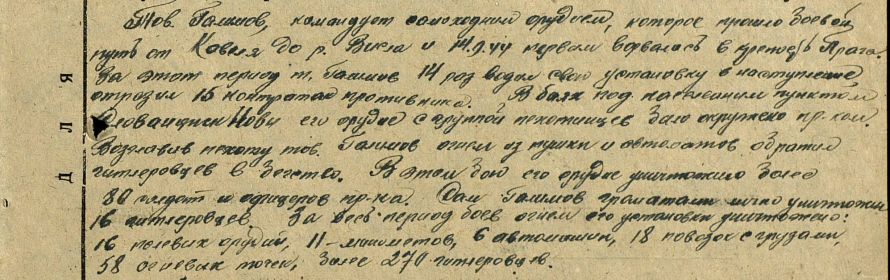 Тов. Галимов, командует самоходным орудием, которое прошло боевой
путь от Ковеля до р. Висла и 14.9.44 первым ворвалась в крепость Прага.
За этот период т. Галимов 14 раз водил свою установку в наступление
отразил 15 контратак противника. В боях под населенным пунктом
Нови его орудие с группой пехотинцев было окружено пр-ком.
Возглавив пехоту тов. Галимов огнем из пушки и автоматов обратил
гитлеровцев в бегство. В этом бою его орудие уничтожило более
80 солдат и офицеров пр-ка. Сам Галимов гранатами лично уничтожил
16 гитлеровцев. За весь период боев огнем его установки уничтожено:
16 полевых орудий, 11-минометов, 6 автомашин, 18 повозок с грузами,
58 огневых точек, более 270 гитлеровцев.
ДЛЯ